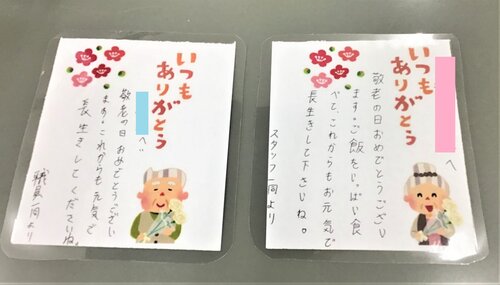 いつも
ありがとう
へ
敬老の日おめでとうござい
ます。これからも元気で
長生きしてくださいね。
職員一同より
いつも
ありがとう
へ
敬老の日おめでとうござい
ます。ご飯をいっぱい食
べて、これからもお元気で
長生きして下さいね。
スタッフ一同より